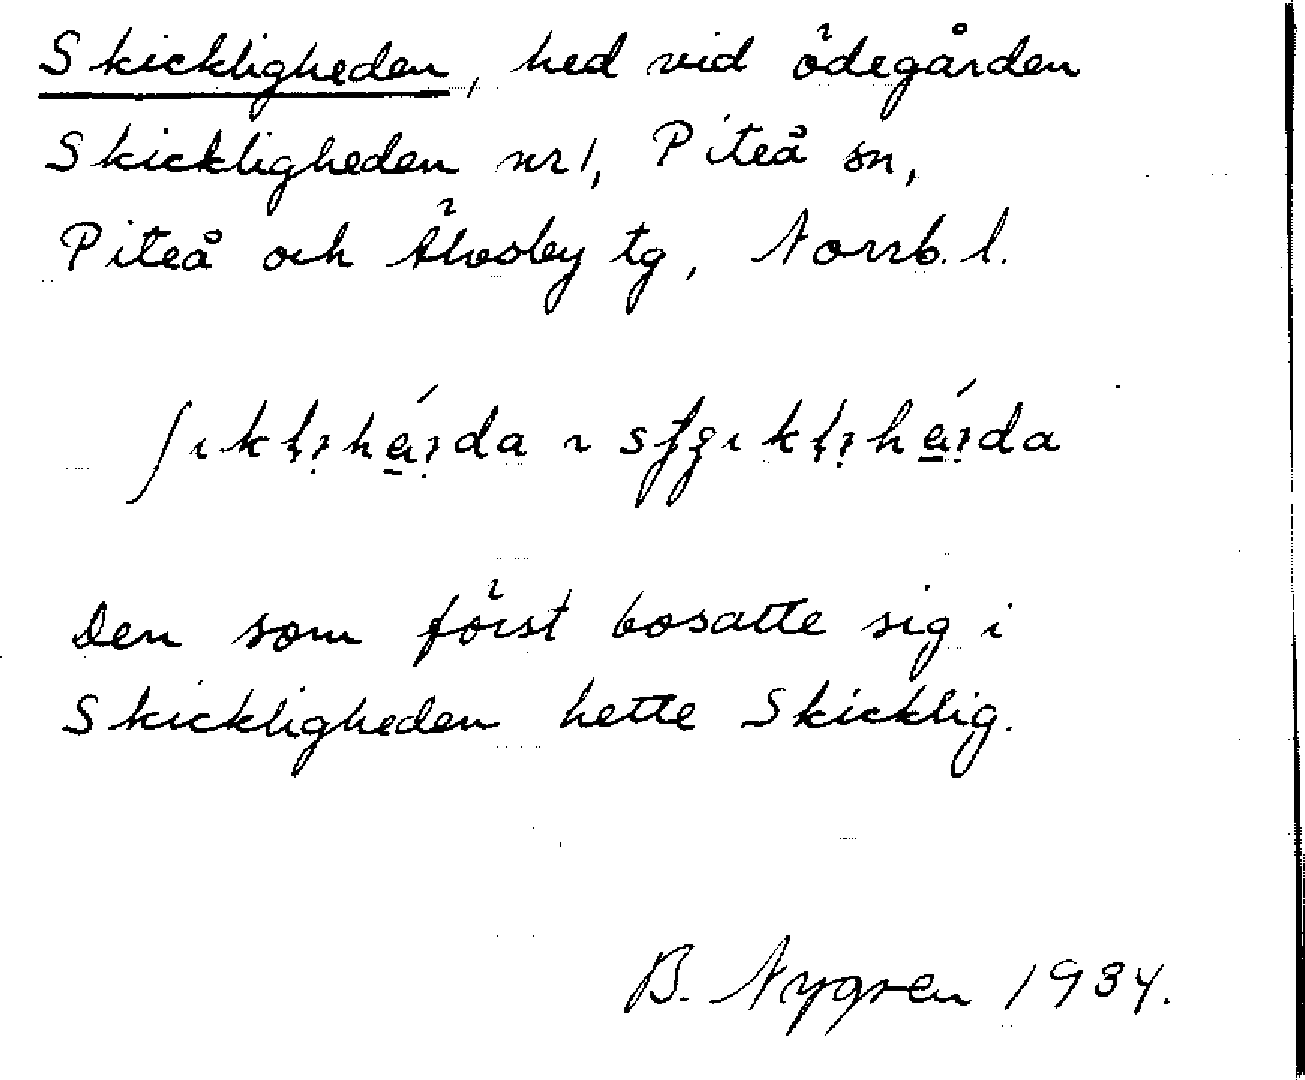 Skickligheden, hed vid ödegården
Skickligheden nr 1, Piteå sn,
Piteå och Älvsby tg, Norrb. l.
Den som först bosatte sig i
Skickligheden hette Skicklig.
B. Nygren 1934.